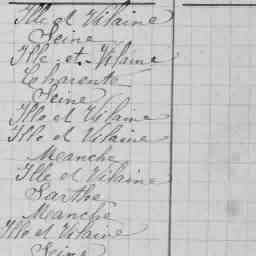 Ille et Vilaine
Seine
Ille et Vilaine
Charente
Seine
Ille et Vilaine
Ille et Vilaine
Meanche
Ille et Vilaine
Sarthe
Manche
Ille et Vilaine
Seine